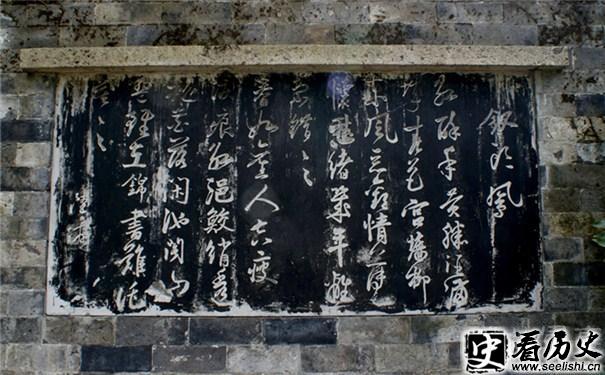 钗头凤
红酥手黄縢酒满
城春色宫墙柳
東风恶欢情薄
怀愁绪几年離
索错〻
春如旧人空瘦
泪痕红浥鲛绡透
桃花落闲池阁山
盟雖在錦書難託
莫〻
陆游
史 看历史
www.seelishi.cn